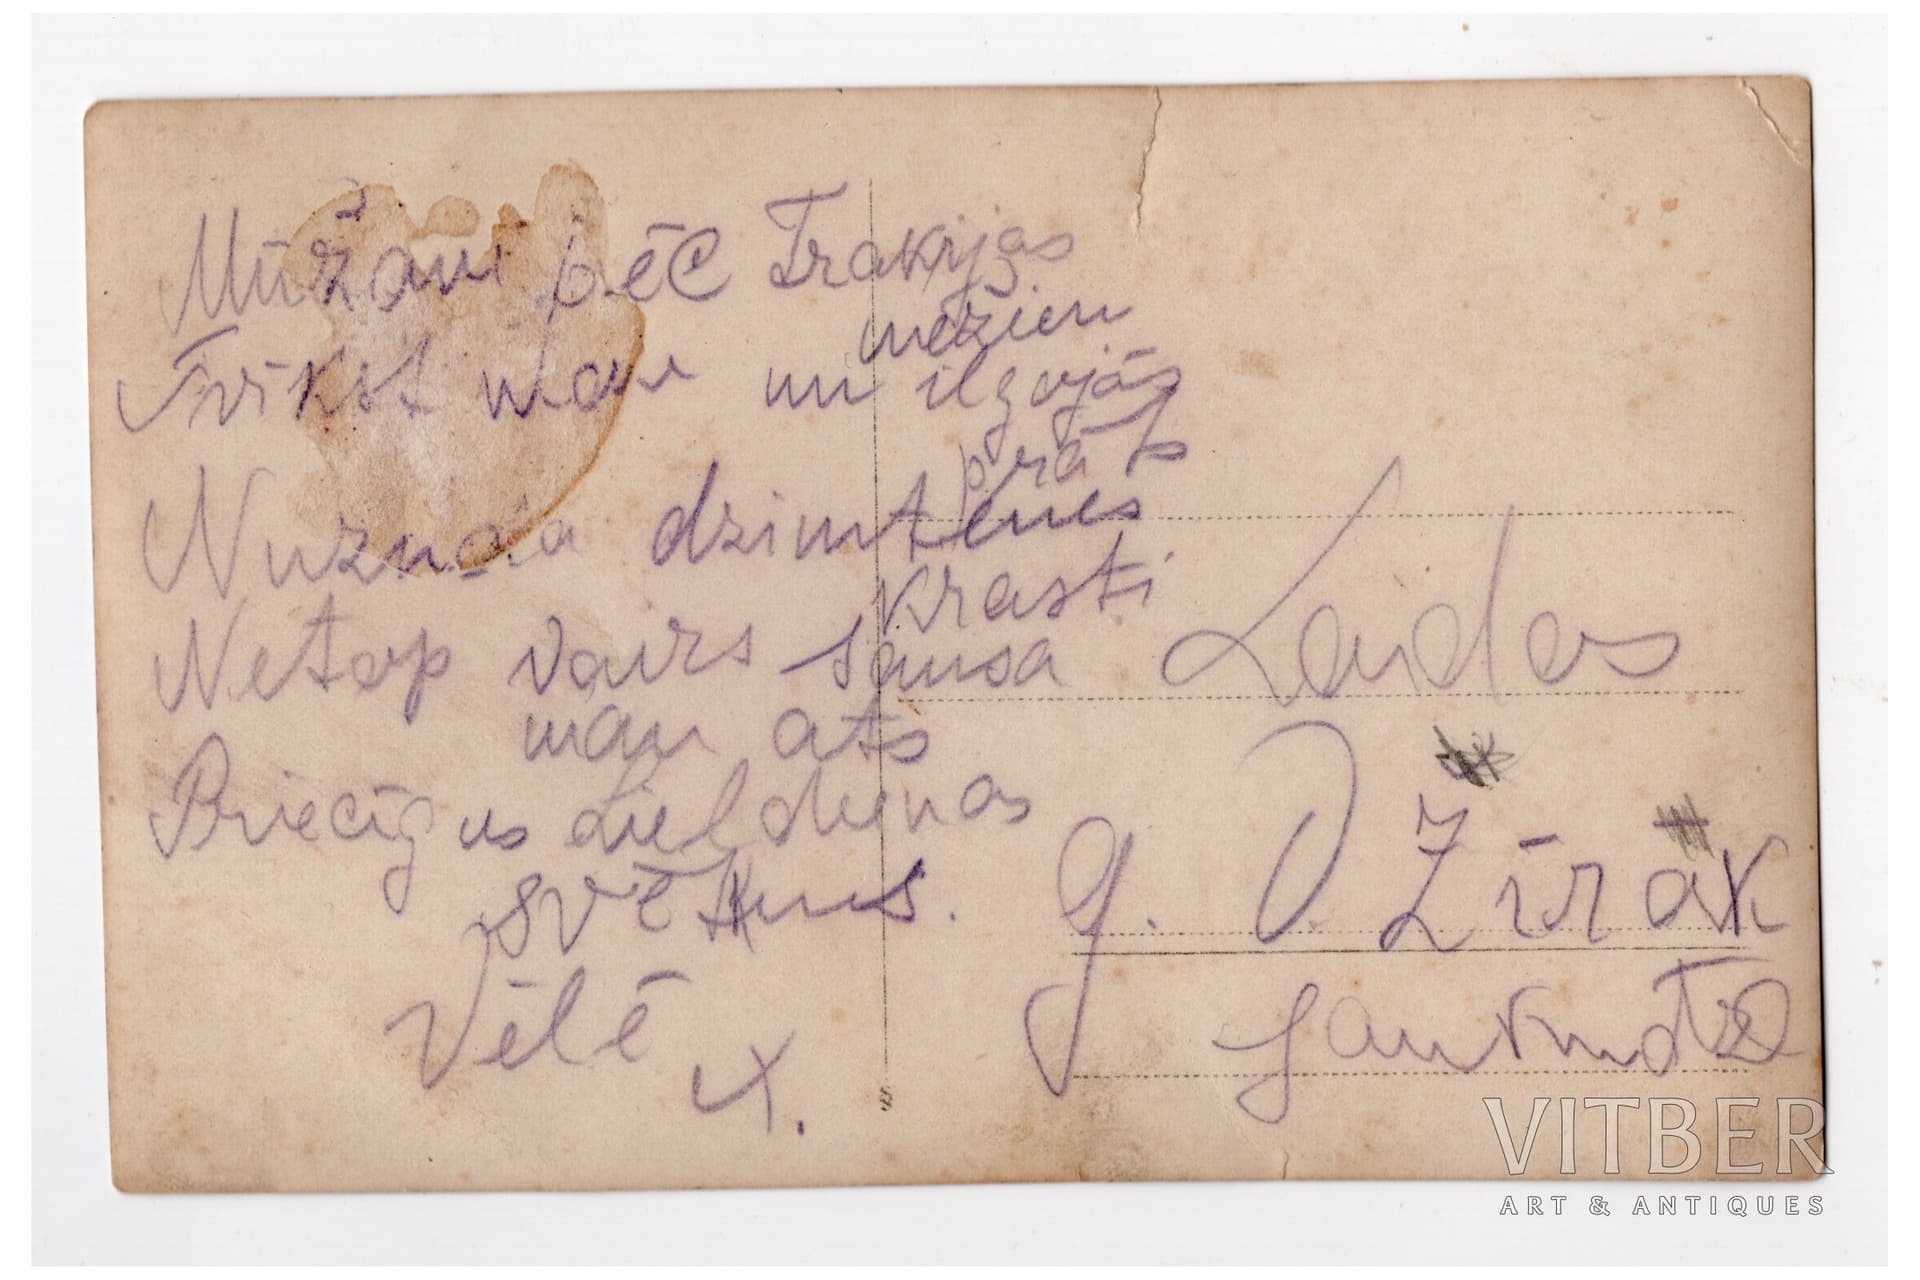 Mūžam pēc Trakijas
mežiem
Tvīkst man un ilgojās
prāts
Nuznīda dzimtenes
krasti
Netop vairs sausa
man ats
Priecīgus Lieldienas
svētkus.
Vēlē
X.
Laidas
g. O. Zīrāk
Jaunkundze
VITBER
ART & ANTIQUES